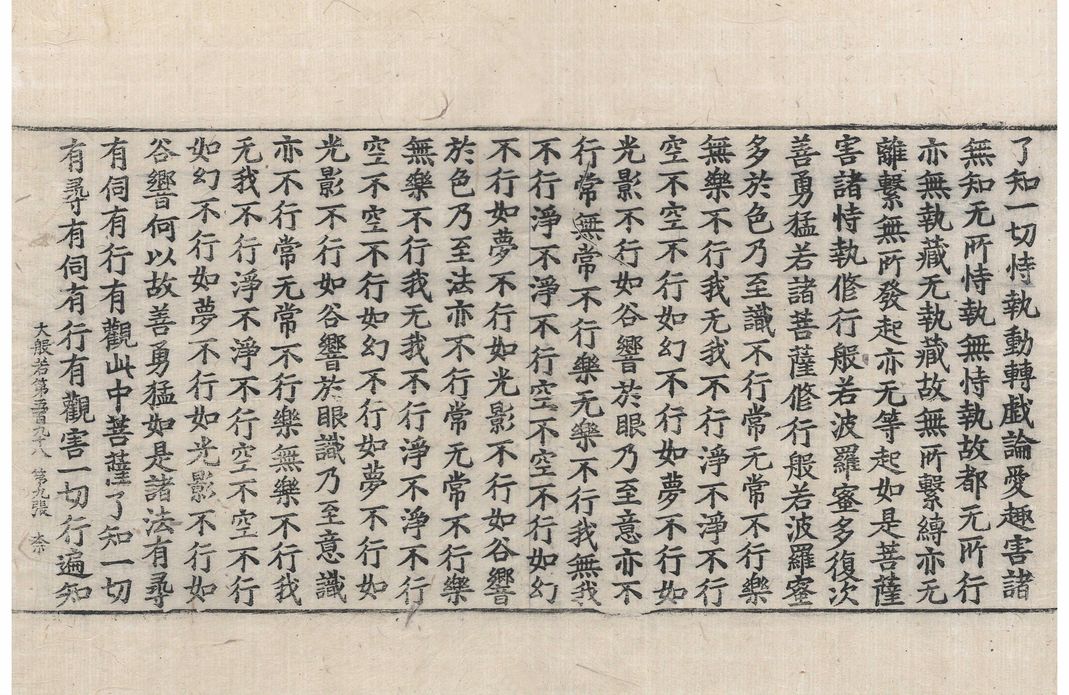 了知一切恃執動轉戲論愛趣害諸
無知无所恃執無恃執故都无所行
亦無執藏无執藏故無所繫縛亦无
離繫無所發起亦无等起如是菩薩
害諸恃執修行般若波羅蜜多復次
善勇猛若諸菩薩修行般若波羅蜜
多於色乃至識不行常无常不行樂
無樂不行我无我不行淨不淨不行
空不空不行如幻不行如夢不行如
光影不行如谷響於眼乃至意亦不
行常無常不行樂无樂不行我無我
不行淨不淨不行空不空不行如幻
不行如夢不行如光影不行如谷響
於色乃至法亦不行常无常不行樂
無樂不行我无我不行淨不淨不行
空不空不行如幻不行如夢不行如
光影不行如谷響於眼識乃至意識
亦不行常无常不行樂無樂不行我
无我不行淨不淨不行空不空不行
如幻不行如夢不行如光影不行如
谷響何以故善勇猛如是諸法有尋
有伺有行有觀此中菩薩了知一切
有尋有伺有行有觀害一切行遍知
大般若第五百九十八 第九張 柰